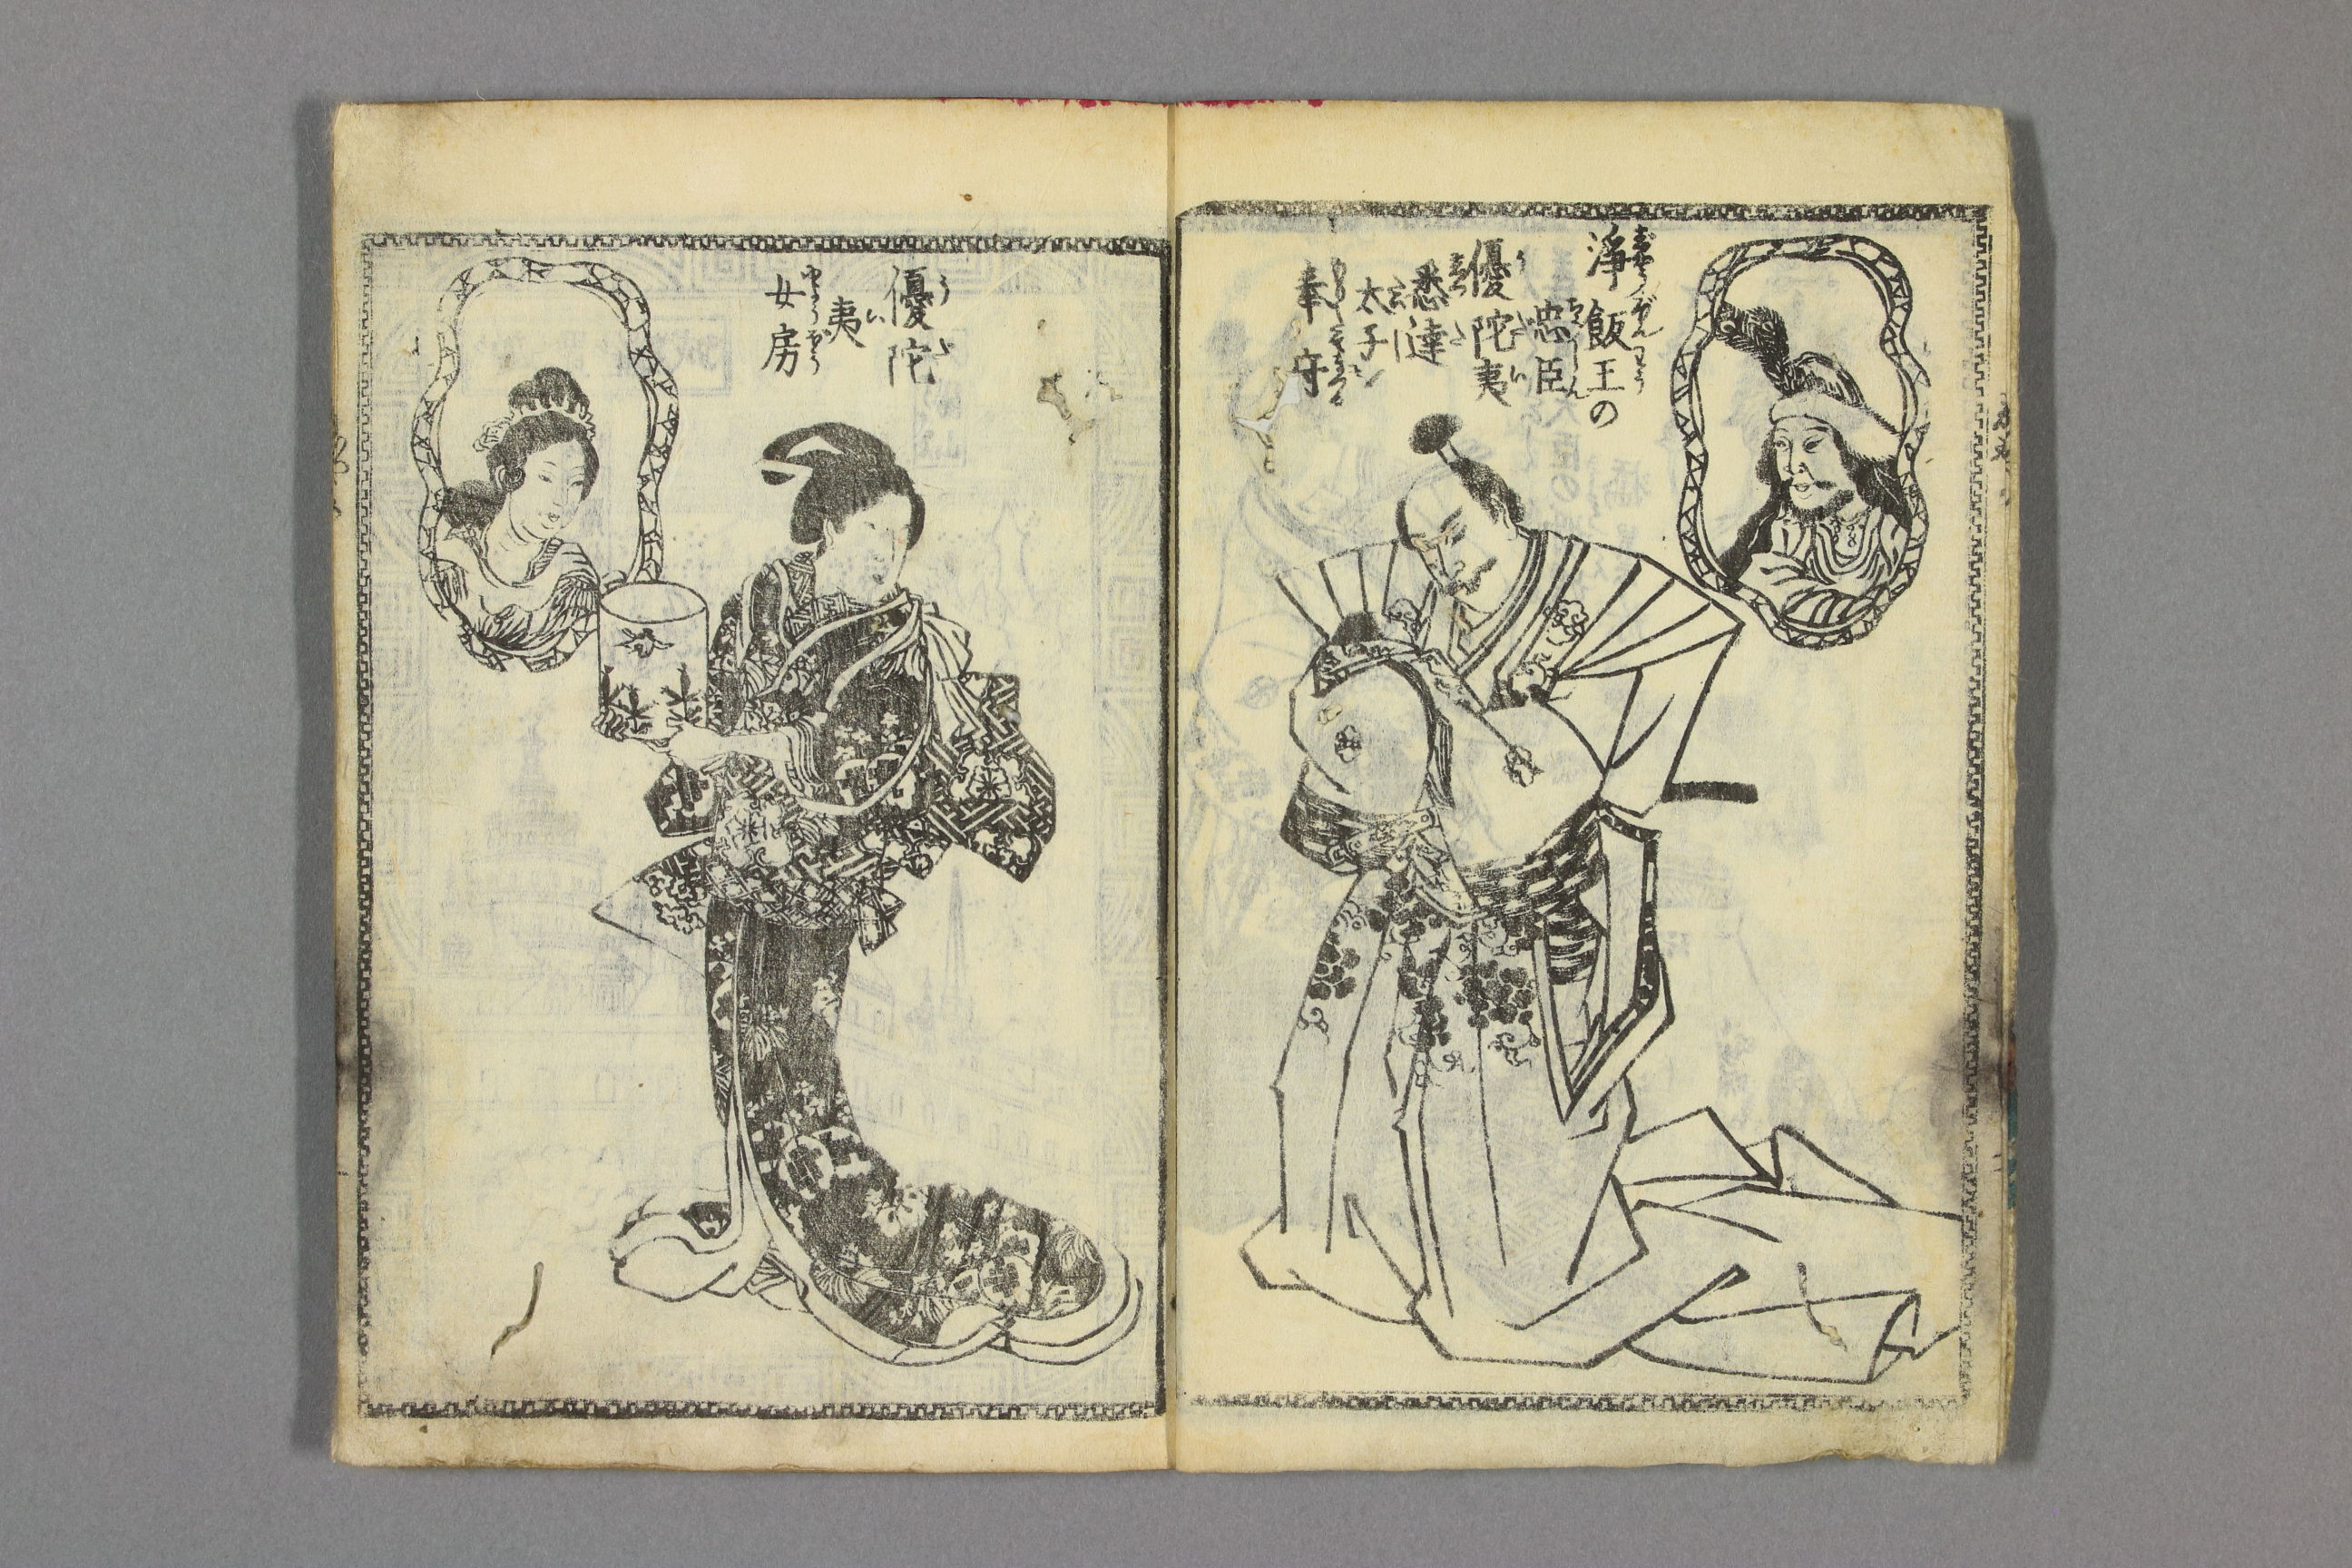 淨飯王の
忠臣
優陀夷
悉達
太子
奉守
優陀
夷
女房